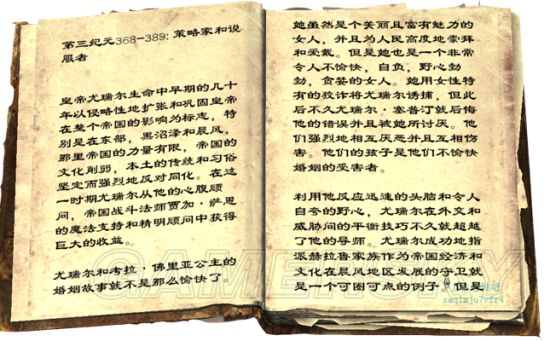 第三纪元368-389: 策略家和说
服者
皇帝尤瑞尔生命中早期的几十
年以侵略性地扩张和巩固皇帝
在整个帝国的影响为标志，特
别是在东部，黑沼泽和晨风，
那里帝国的力量有限，帝国的
文化削弱，本土的传统和习俗
坚定而强烈地反对同化。在这
一时期尤瑞尔从他的心腹顾
问，帝国战斗法师贾加·萨恩
的魔法支持和精明顾问中获得
巨大的收益。
尤瑞尔和考拉·佛里亚公主的
婚姻故事就不是那么愉快了。
她虽然是个美丽且富有魅力的
女人，并且为人民高度地崇拜
和受戴。但是她也是一个非常
令人不愉快，自负，野心勃
勃，贪婪的女人。她用女性特
有的狡诈将尤瑞尔诱捕，但此
后不久尤瑞尔·塞普汀就后悔
他的错误并且被她所讨厌。他
们强烈地相互厌恶并且互相伤
害。他们的孩子是他们不愉快
婚姻的受害者。
利用他反应迅速的头脑和令人
自夸的野心，尤瑞尔在外交和
威胁间的平衡技巧不久就超越
了他的导师。尤瑞尔成功地指
派赫拉鲁家族作为帝国经济和
文化在晨风地区发展的守卫就
是一个可圈可点的例子，但是
GAMERSKY
zaqimju7vfr4